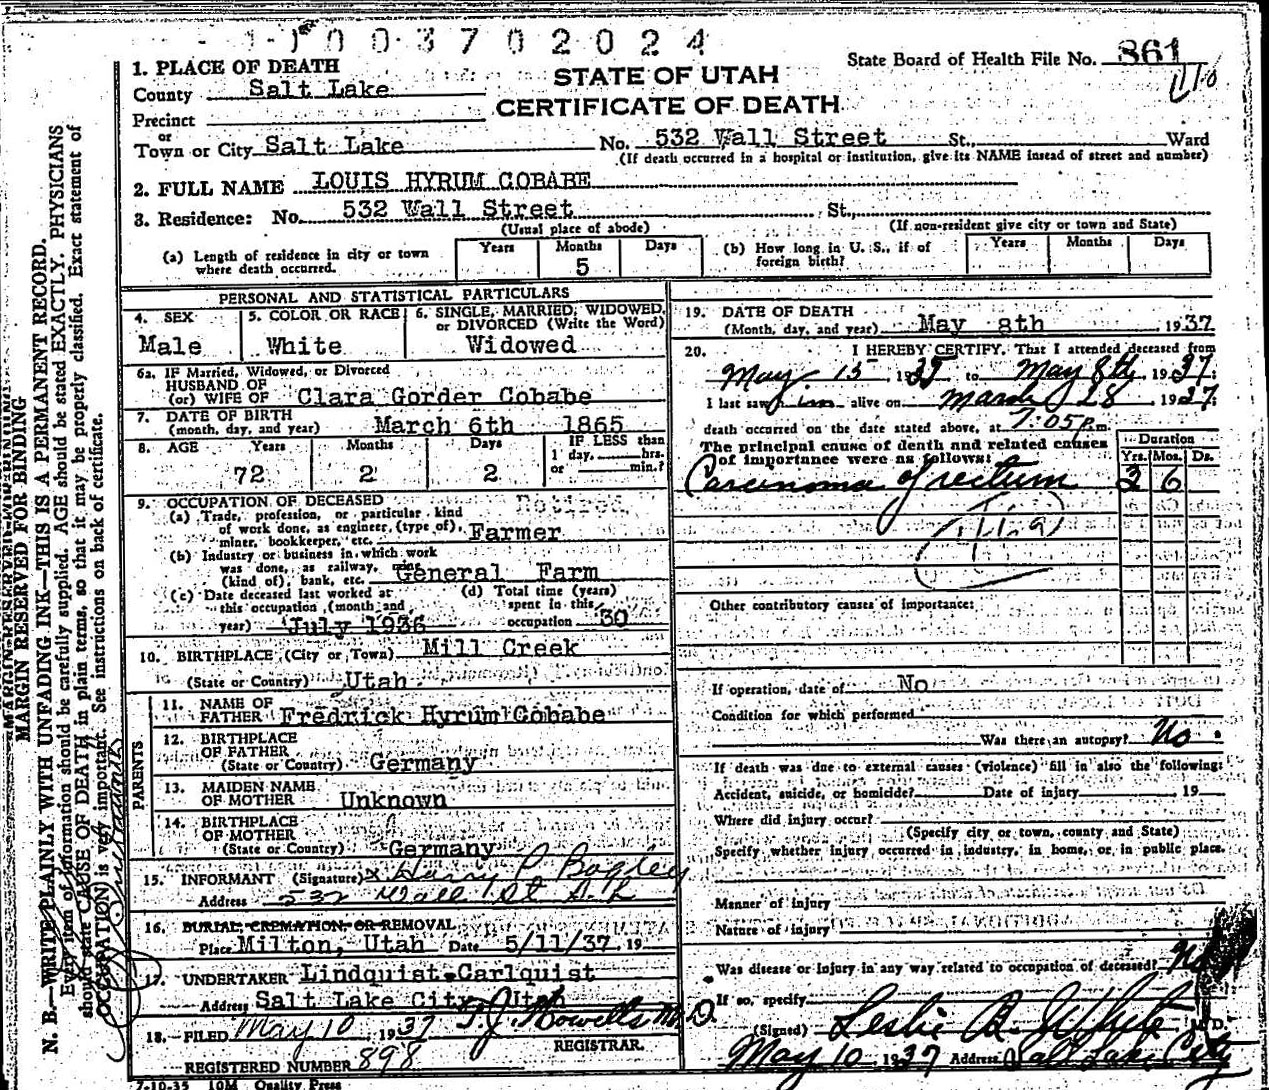 1003702024
State Board of Health File No. 861
116
STATE OF UTAH
CERTIFICATE OF DEATH
1. PLACE OF DEATH
County Salt Lake
Precinct
or
Town or City Salt Lake No. 532 Wall Street St., Ward
(If death occurred in a hospital or institution, give its NAME instead of street and number)
2. FULL NAME LOUIS HYRUM COBABE
3. Residence: No. 532 Wall Street St.,
(Usual place of abode) (If non-resident give city or town and State)
(a) Length of residence in city or town where death occurred. Years Months 5 Days
(b) How long in U. S., if of foreign birth? Years Months Days
PERSONAL AND STATISTICAL PARTICULARS
4. SEX Male
5. COLOR OR RACE White
6. SINGLE, MARRIED, WIDOWED, or DIVORCED (Write the Word) Widowed
6a. IF Married, Widowed, or Divorced
HUSBAND OF
(or) WIFE OF Clara Gorder Cobabe
7. DATE OF BIRTH
(month, day, and year) March 6th 1865
8. AGE Years 72 Months 2 Days 2 IF LESS than 1 day, hrs. or min.?
9. OCCUPATION OF DECEASED Retired
(a) Trade, profession, or particular kind
of work done, as engineer, (type of),
miner, bookkeeper, etc. Farmer
(b) Industry or business in which work
was done, as railway,
(kind of), bank, etc. General Farm
(c) Date deceased last worked at
this occupation, (month and
year) July 1936
(d) Total time (years)
spent in this
occupation 30
10. BIRTHPLACE (City or Town) Mill Creek
(State or Country) Utah
PARENTS
11. NAME OF
FATHER Fredrick Hyrum Cobabe
12. BIRTHPLACE
OF FATHER
(State or Country) Germany
13. MAIDEN NAME
OF MOTHER Unknown
14. BIRTHPLACE
OF MOTHER
(State or Country) Germany
15. INFORMANT (Signature) x Harry P Bagley
Address 532 Wall St S. L
16. BURIAL, CREMATION, OR REMOVAL
Place Milton, Utah Date 5/11/37, 19
17. UNDERTAKER Lindquist-Carlquist
Address Salt Lake City, Utah
18. FILED May 10, 1937 T. J. Howells M.D.
REGISTRAR.
REGISTERED NUMBER 898
7-10-35 10M Quality Press
19. DATE OF DEATH
(Month, day, and year) May 8th, 1937
20. I HEREBY CERTIFY, That I attended deceased from
May 15, 1935 to May 8th, 1937.
I last saw him alive on March 28, 1937;
death occurred on the date stated above, at 7:05 P.m.
The principal cause of death and related causes
of importance were as follows: Duration
Yrs. Mos. Ds.
Carcinoma of rectum 3 6
Other contributory causes of importance:
If operation, date of No
Condition for which performed
Was there an autopsy? No.
If death was due to external causes (violence) fill in also the following:
Accident, suicide, or homicide? Date of injury 19
Where did injury occur?
(Specify city or town, county and State)
Specify whether injury occurred in industry, in home, or in public place.
Manner of injury
Nature of injury
Was disease or injury in any way related to occupation of deceased? No
If so, specify
(Signed) Leslie B. White, M. D.
May 10 1937 Address Salt Lake City
MARGIN RESERVED FOR BINDING
N. B.—WRITE PLAINLY WITH UNFADING INK—THIS IS A PERMANENT RECORD.
Every item of information should be carefully supplied. AGE should be stated EXACTLY. PHYSICIANS
should state CAUSE OF DEATH in plain terms, so that it may be properly classified. Exact statement of
OCCUPATION is very important. See instructions on back of certificate.